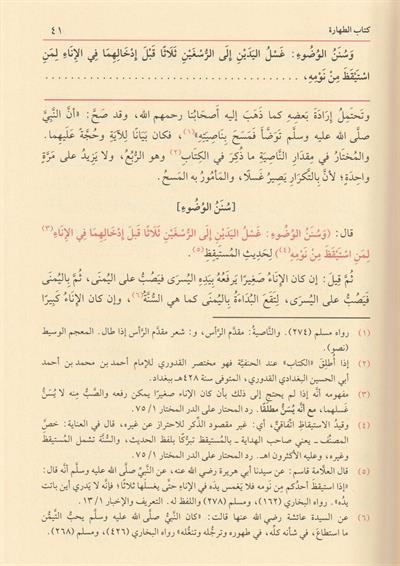 كتاب الطهارة ٤١
وَسُنَنُ الوُضُوءِ: غَسْلُ اليَدَيْنِ إِلَى الرُّسْغَيْنِ ثَلَاثًا قَبْلَ إِدْخَالِهِمَا فِي الإِنَاءِ لِمَنِ
اسْتَيْقَظَ مِنْ نَوْمِهِ، ........................................
وتَحتَمِلُ إرَادَةَ بَعضِهِ كما ذَهَبَ إليه أَصحَابُنا رحمهم الله، وقد صَحَّ: «أنَّ النَّبيَّ
صلَّى الله عليه وسلَّم تَوَضَّأَ فَمَسَحَ بِنَاصِيَتِهِ»(١)، فكان بَيَانًا لِلآيَةِ وحُجَّةً عَلَيهِما.
والمُختَارُ في مِقدَارِ النَّاصِيَةِ ما ذُكِرَ في الكِتَابِ(٢) وهو الرُّبُعُ، ولا يَزِيدُ على مَرَّةٍ
واحِدَةٍ؛ لأنَّ بِالتَّكرَارِ يَصِيرُ غَسلًا، والمَأمُورُ به المَسحُ.
[سُنَنُ الوُضُوءِ]
قال: (وَسُنَنُ الوُضُوءِ: غَسْلُ اليَدَيْنِ إِلَى الرُّسْغَيْنِ ثَلَاثًا قَبْلَ إِدْخَالِهِمَا فِي الإِنَاءِ(٣)
لِمَنِ اسْتَيْقَظَ مِنْ نَوْمِهِ(٤)) لِحَدِيثِ المُستَيقِظِ(٥).
ثُمَّ قِيلَ: إن كان الإنَاءُ صَغِيرًا يَرفَعُهُ بِيَدِهِ اليُسرَى فَيَصُبُّ على اليُمنَى، ثُمَّ بِاليُمنَى
فَيَصُبُّ على اليُسرَى، لِتَقَعَ البُدَاءَةُ بِاليُمنَى كما هي السُّنَّةُ(٦)، وإن كان الإنَاءُ كَبِيرًا
(١) رواه مسلم (٢٧٤). والنَّاصيةُ: مقدَّم الرَّأس، و: شعر مقدَّم الرَّأس إذا طال. المعجم الوسيط
(نصو).
(٢) إذا أُطلِقَ «الكتاب» عند الحنفيَّة فهو مختصر القدوري للإمام أحمد بن محمد بن أحمد
أبي الحسين البغدادي القدوري، المتوفى سنة ٤٢٨هـ ببغداد.
(٣) مفهومه أنَّه إذا لم يحتج إلى ذلك بأن كان الإناء صغيرًا يمكن رفعه والصَّبُّ منه لا يُسَنُّ
غسلهما، مع أنَّه يُسَنُّ مطلقًا. رد المحتار على الدر المختار ١/ ٧٥.
(٤) وقيدُ الاستيقاظِ اتِّفاقيٌّ، أي: غير مقصود الذِّكر للاحتراز عن غيره، قال في العناية: خصَّ
المصنِّف ـ يعني صاحب الهداية ـ بالمستيقظ تبرُّكًا بلفظ الحديث، والسُّنَّة تشمل المستيقظ
وغيره، وعليه الأكثرون اهـ. رد المحتار على الدر المختار ١/ ٧٥.
(٥) قال العلَّامة قاسم: عن سيدنا أبي هريرة رضي الله عنه، عن النَّبيِّ صلَّى الله عليه وسلَّم أنَّه قال:
«إذا استيقظَ أحدُكُم مِن نَومه فلا يَغمس يدَه في الإناء حتى يغسلَها ثلاثًا؛ فإنَّه لا يَدري أين باتت
يدُه». رواه البخاري (١٦٢)، ومسلم (٢٧٨) واللفظ له. التعريف والإخبار ١٣/١.
(٦) عن السيدة عائشة رضي الله عنها قالت: «كان النَّبيُّ صلَّى الله عليه وسلَّم يحبُّ التَّيمُّن
ما استطاعَ، في شأنه كلِّه، في طهوره وترجُّله وتنعُّله» رواه البخاري (٤٢٦)، ومسلم (٢٦٨).